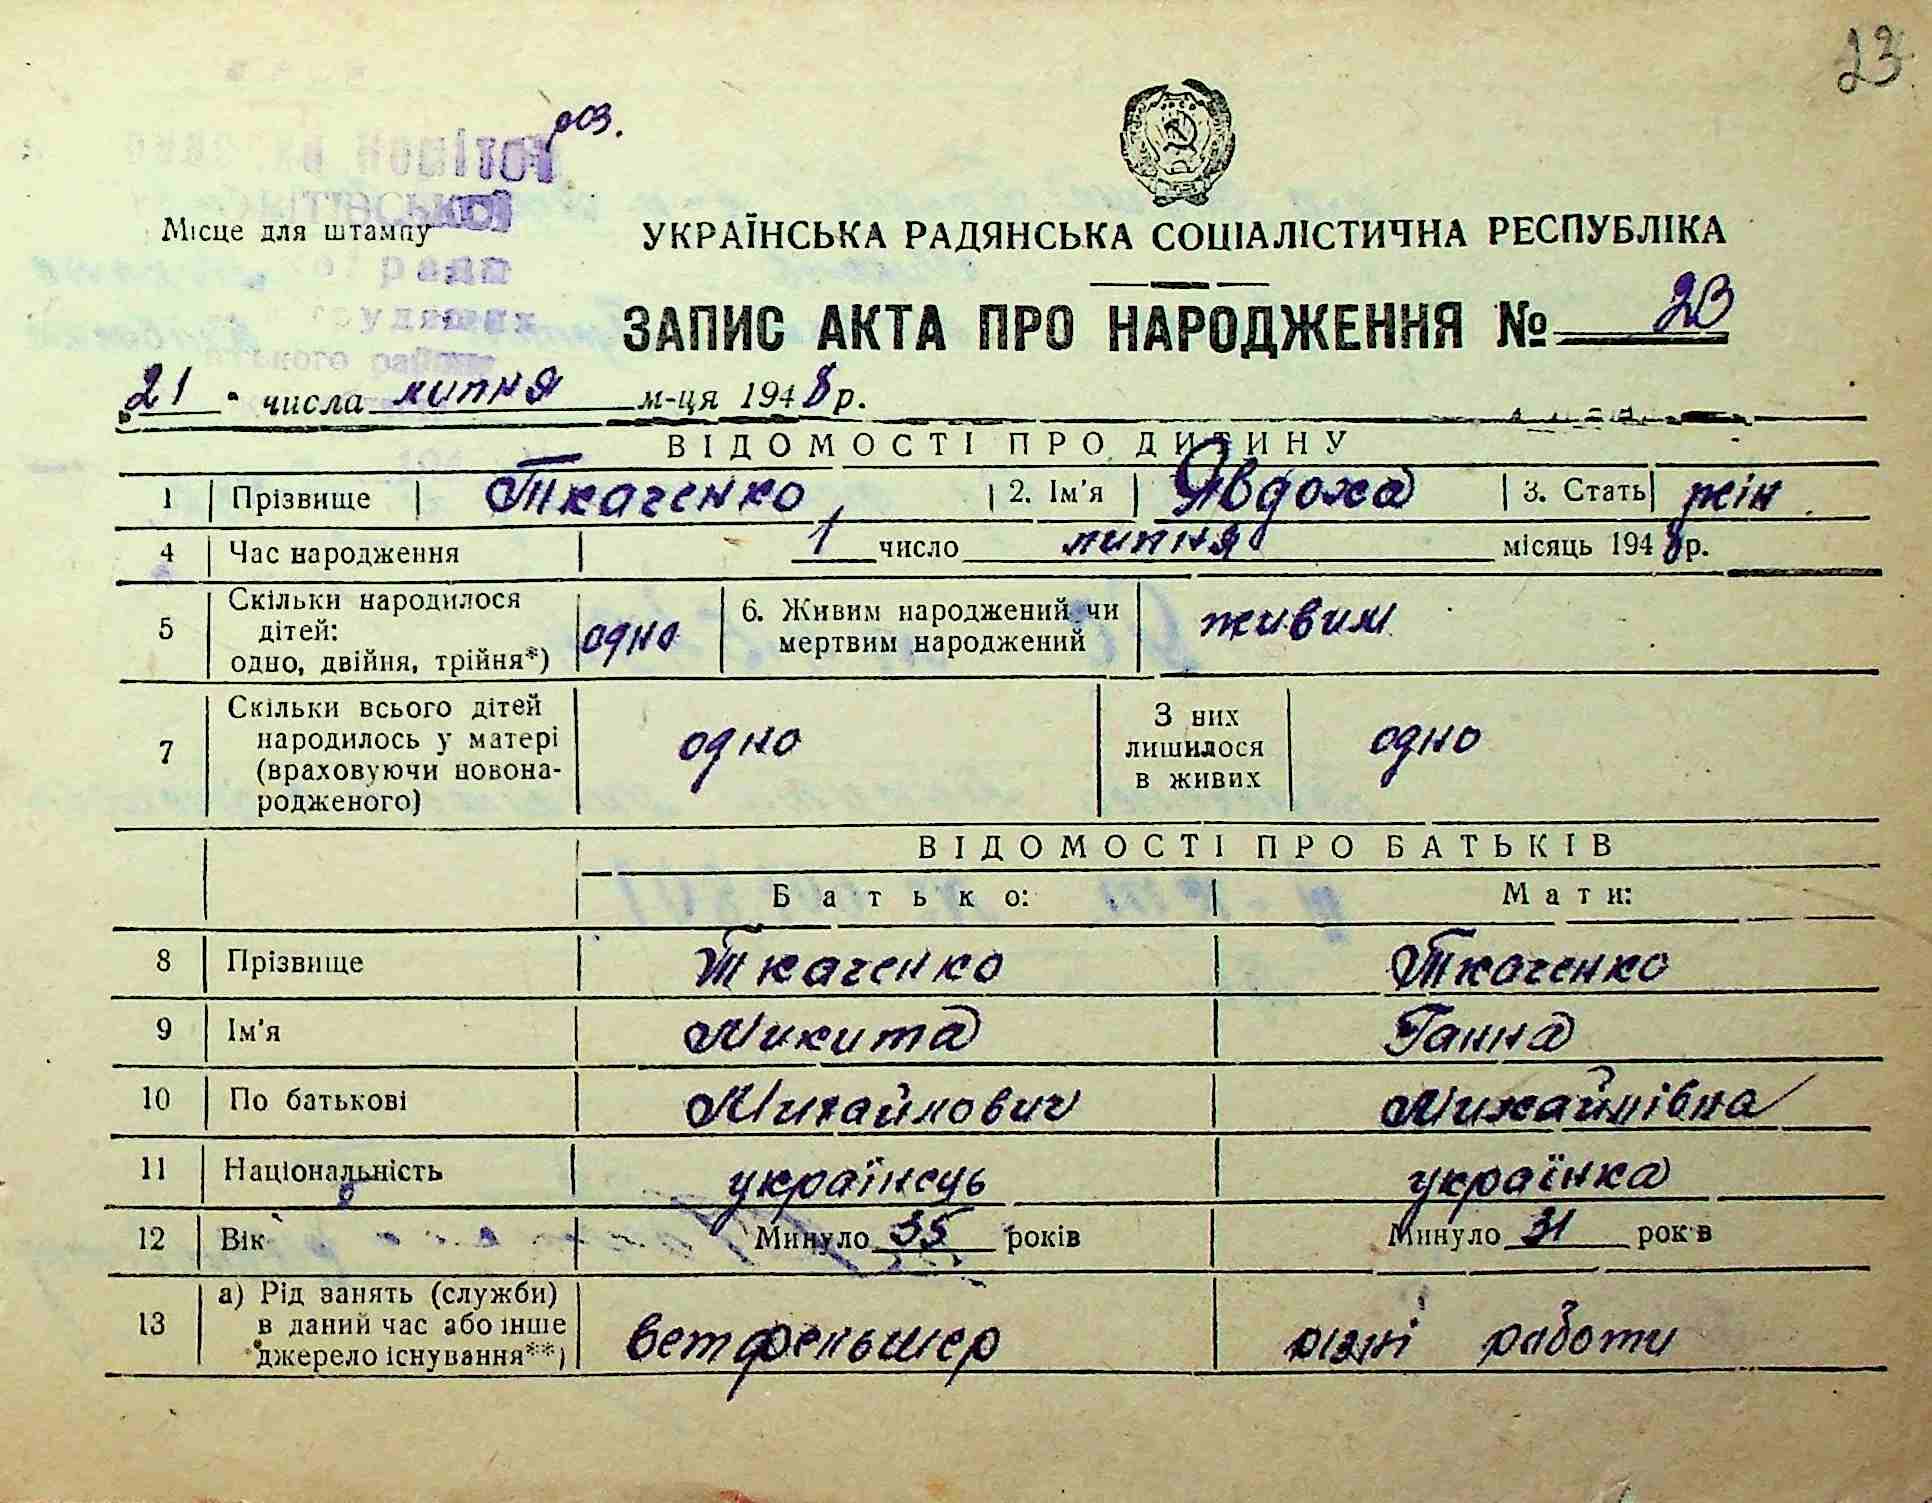 23
Місце для штампу
УКРАЇНСЬКА РАДЯНСЬКА СОЦІАЛІСТИЧНА РЕСПУБЛІКА
ЗАПИС АКТА ПРО НАРОДЖЕННЯ № 23
21 числа липня м-ця 1948 р.
ВІДОМОСТІ ПРО ДИТИНУ
1 Прізвище Ткаченко 2. Ім'я Явдоха 3. Стать жін
4 Час народження 1 число липня місяць 1948 р.
5 Скільки народилося дітей: одно, двійня, трійня*) одно 6. Живим народжений чи мертвим народжений живим
7 Скільки всього дітей народилось у матері (враховуючи новонародженого) одно З них лишилося в живих одно
ВІДОМОСТІ ПРО БАТЬКІВ
Батько: Мати:
8 Прізвище Ткаченко Ткаченко
9 Ім'я Микита Ганна
10 По батькові Михайлович Михайлівна
11 Національність українець українка
12 Вік Минуло 35 років Минуло 31 років
13 а) Рід занять (служби) в даний час або інше джерело існування**) ветфельшер різні работи